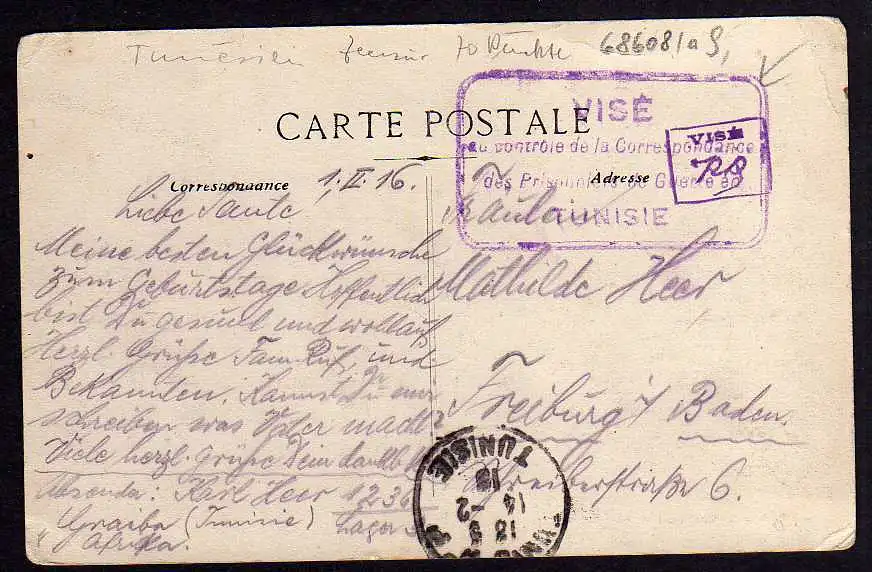 Tunesien Zensur 70 Punkte 68608/a S,
CARTE POSTALE
VISÉ
au contrôle de la Correspondance
des Prisonniers de Guerre en
TUNISIE
VISÉ
Correspondance
Adresse
1.II.16.
Liebe Tante,
Meine besten Glückwünsche
zum Geburtstage Hoffentlich
bist Du gesund und wollauf
Herzl. Grüße Fam. Ruf, und
Bekannten. Kannst Du mir
schreiben was Vater macht?
Viele herzl. Grüße Dein dankb.
Absender: Karl Heer 1236
Graiba (Tunisie) Lager
Afrika.
Fräulein
Mathilde Heer
Freiburg i/ Baden.
Schreiberstraße 6.
TUNISIE
14 -2